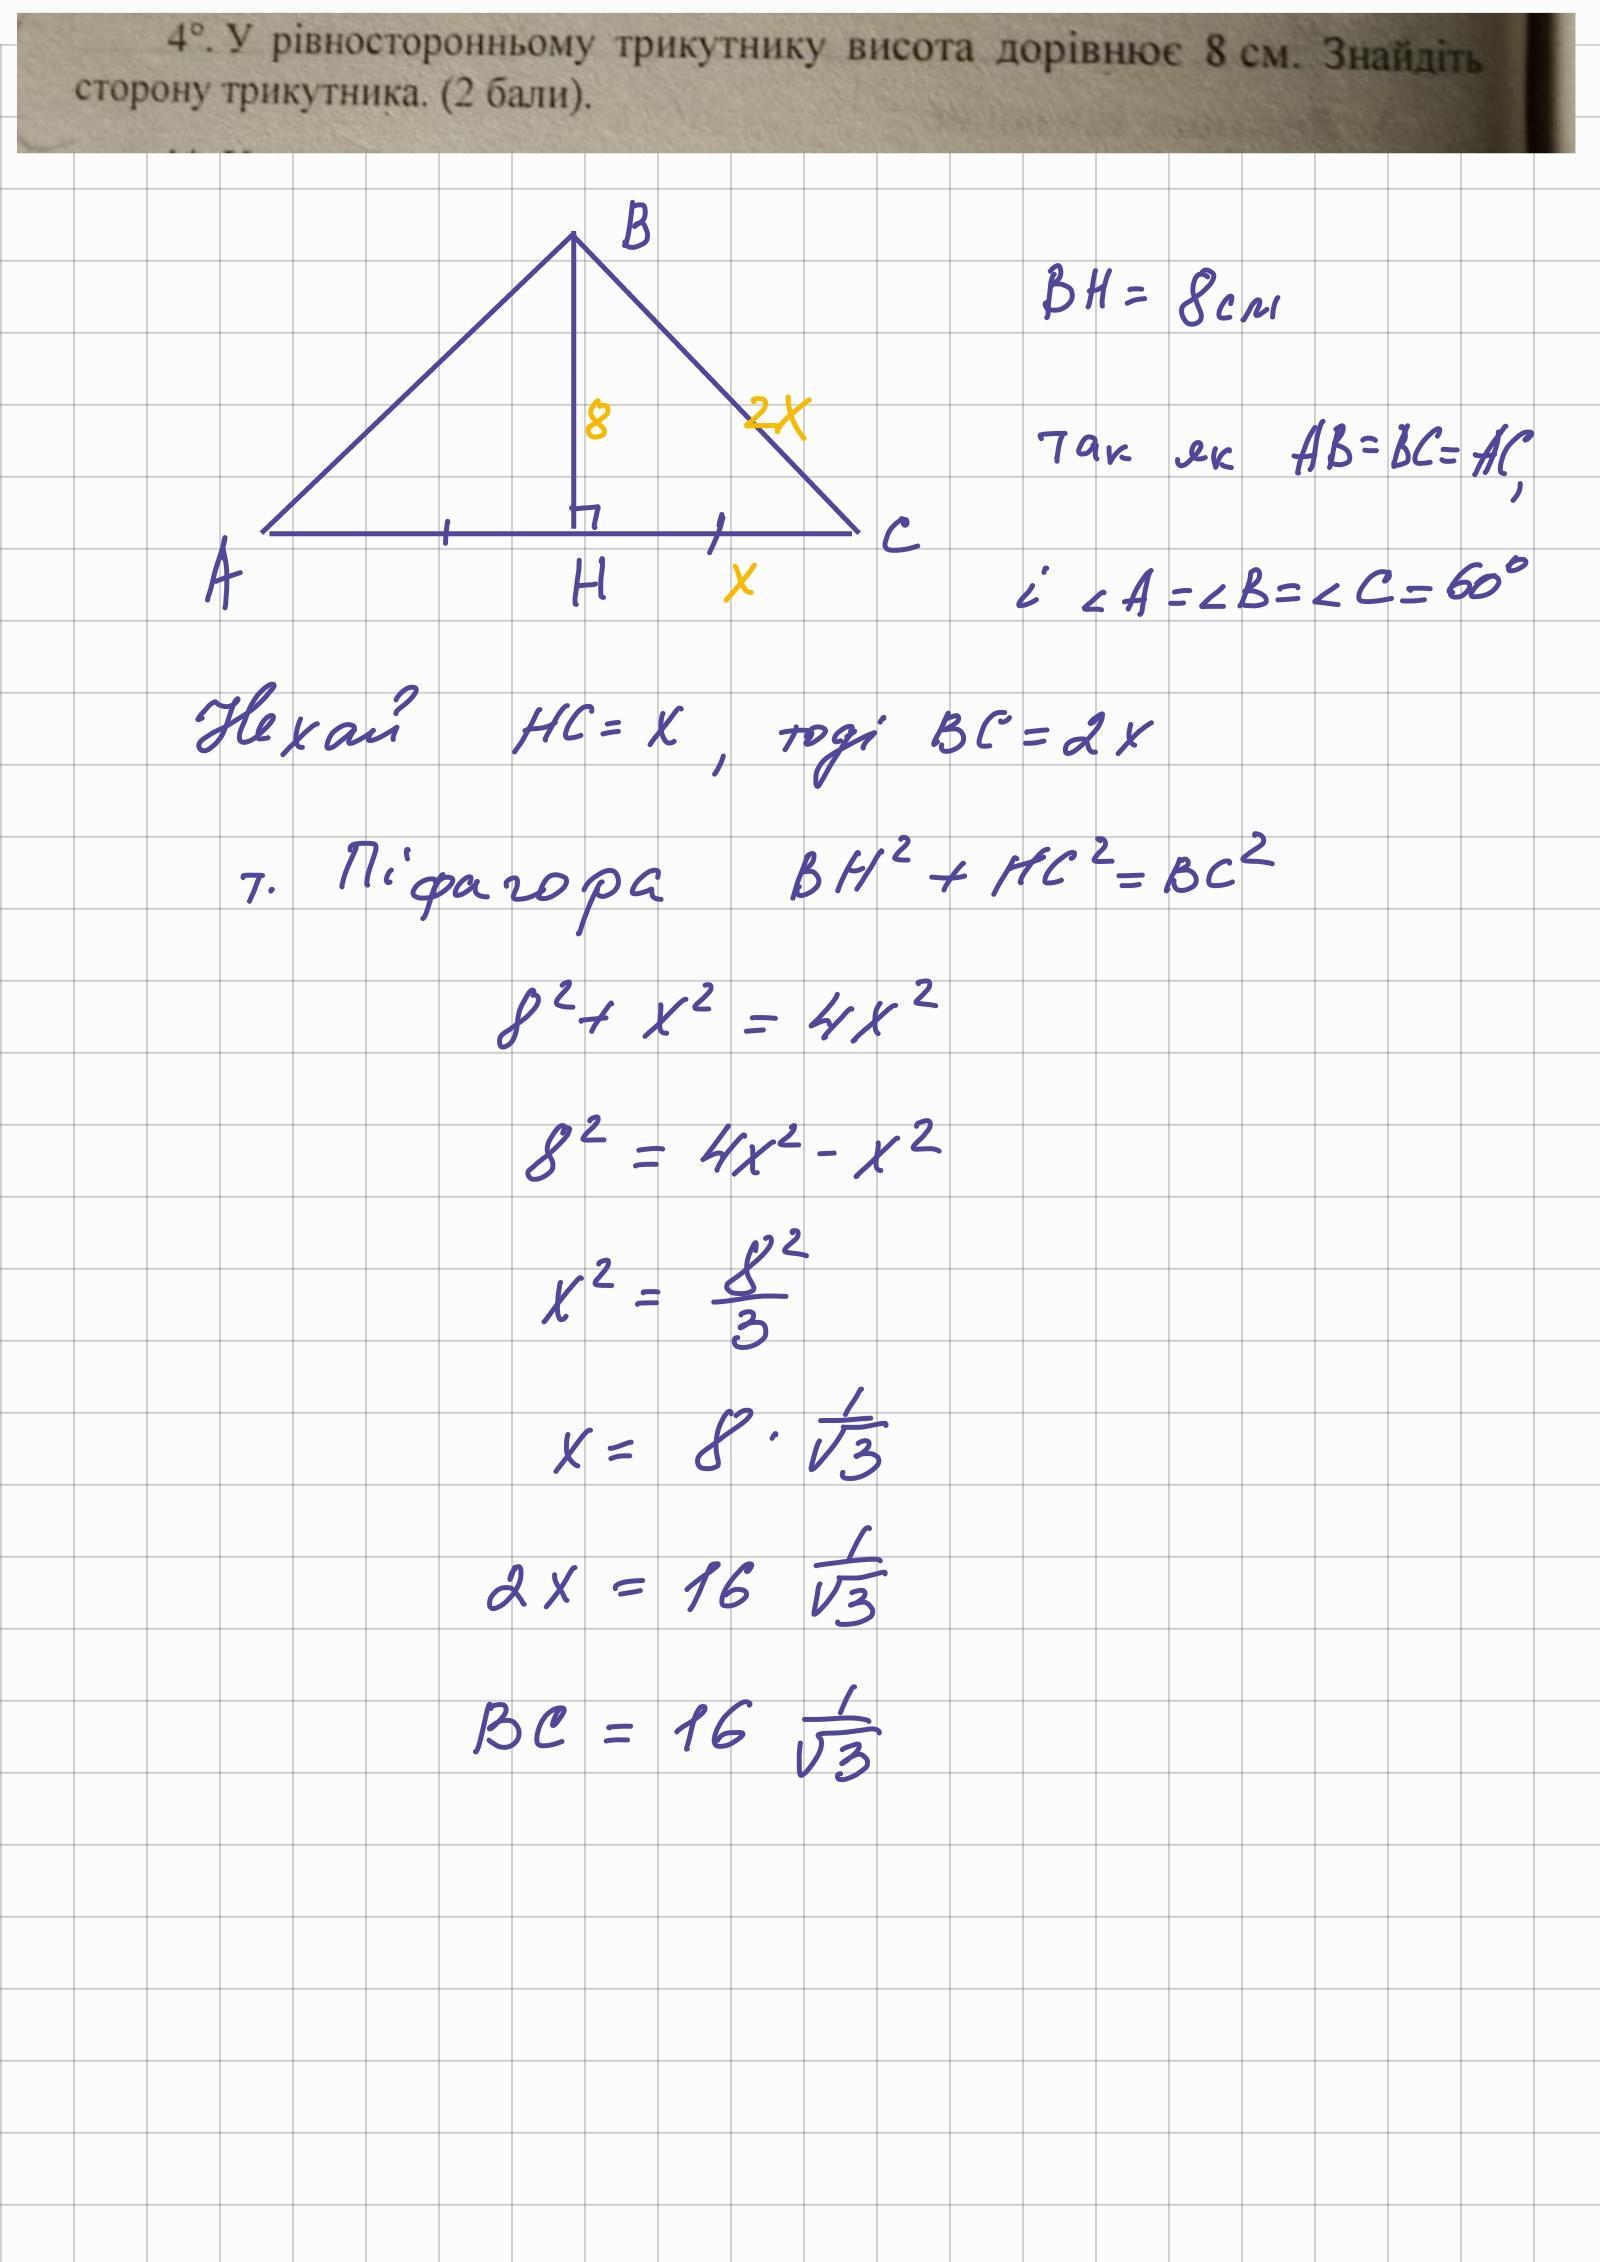 4°. У рівносторонньому трикутнику висота дорівнює 8 см. Знайдіть
сторону трикутника. (2 бали).
B
BH = 8см
8
2x
так як AB=BC=AC,
A
H
x
C
і ∠A=∠B=∠C=60°
Нехай HC = x, тоді BC = 2x
т. Піфагора BH² + HC² = BC²
8² + x² = 4x²
8² = 4x² - x²
x² = 8²/3
x = 8 · 1/√3
2x = 16 1/√3
BC = 16 1/√3